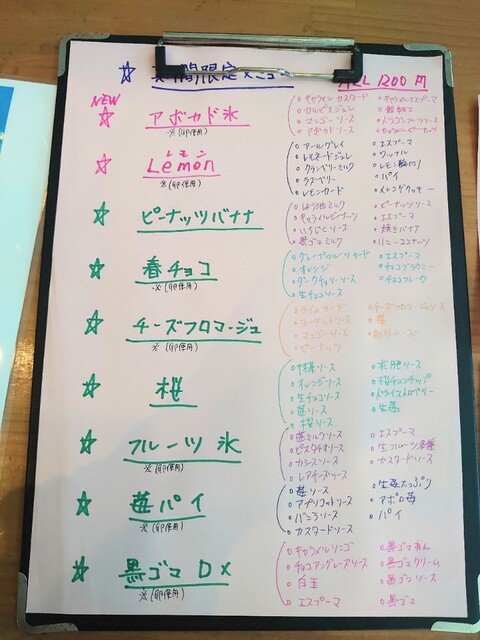 ☆ 期間限定メニュー ALL 1200円
NEW
☆ アボカド氷
※(卵使用)
○キャラメルカスタード ○キャラメルエスプーマ
○カルピスジュレ
○マンゴーソース ○ドラゴンフルーツソース
○アボカドソース ○キャラメルピーナッツ
レモン
☆ Lemon
※(卵使用)
○アールグレイ ○エスプーマ
○レモネードジュレ ○ワッフル
○クランベリーミルク ○レモン輪切り
○ラズベリー ○パイ
○レモンカード ○メレンゲクッキー
☆ ピーナッツバナナ
○ほうじ茶ミルク ○ピーナッツソース
○キャラメルピーナッツ ○エスプーマ
○いちじくソース ○焼きバナナ
○黒ゴマミルク ○ハニーココナッツ
☆ 春チョコ
※(卵使用)
○グレープフルーツカード ○エスプーマ
○オレンジ ○チョコブラウニー
○ダークチェリーソース ○チョコフレーク
○生チョコソース
☆ チーズフロマージュ
※(卵使用)
○ライムカード ○チーズフロマージュソース
○ヨーグルトソース ○苺
○マンゴーソース ○削りチーズ
○ピーナッツ
☆ 桜
○抹茶ソース
○オレンジソース ○桜チョコチップ
○生チョコソース ○ドライストロベリー
○苺ソース ○生苺
○桜ソース
☆ フルーツ氷
※(卵使用)
○苺ミルクソース ○エスプーマ
○ピスタチオソース ○生フルーツ各種
○カシスソース ○カスタードソース
○レアチーズソース
☆ 苺パイ
※(卵使用)
○苺ソース ○生苺たっぷり
○アプリコットソース ○アポロ苺
○バニラソース ○パイ
○カスタードソース
☆ 黒ゴマDX
※(卵使用)
○キャラメルリンゴ ○黒ゴマあん
○チョコアングレーズソース ○黒ゴマクリーム
○白玉 ○黒ゴマソース
○エスプーマ ○黒ゴマ